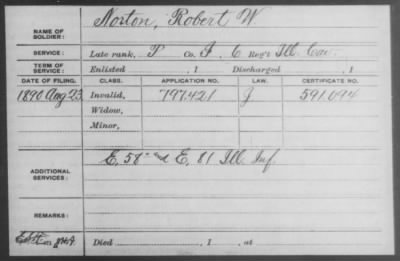 NAME OF SOLDIER: Norton, Robert W.
SERVICE: Late rank, P Co. I, 6 Reg't Ill. Cav.
TERM OF SERVICE: Enlisted , 1 Discharged , 1
DATE OF FILING. CLASS. APPLICATION NO. LAW. CERTIFICATE NO.
1890 Aug 23 Invalid, 797.421 J 591.094
Widow,
Minor,
ADDITIONAL SERVICES: E, 58" and E, 81 Ill. Inf
REMARKS:
Died , 1 , at